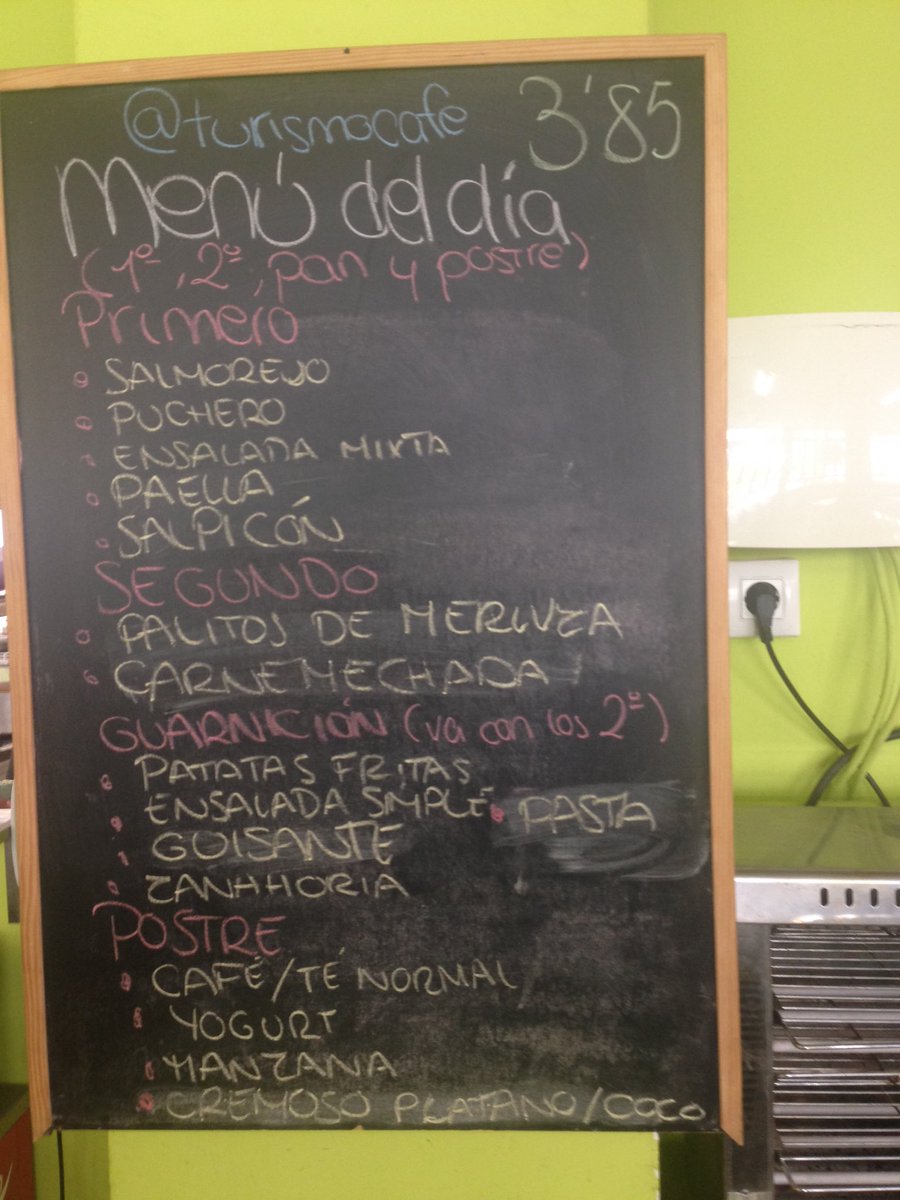 @turismocafe 3'85
Menú del día
(1º, 2º, pan y postre)
Primero
SALMOREJO
PUCHERO
ENSALADA MIXTA
PAELLA
SALPICÓN
SEGUNDO
PALITOS DE MERLUZA
CARNE MECHADA
GUARNICIÓN (va con los 2º)
PATATAS FRITAS
ENSALADA SIMPLE
PASTA
GUISANTE
ZANHHORIA
POSTRE
CAFÉ/TÉ NORMAL
YOGURT
MANZANA
CREMOSO PLATANO/COCO